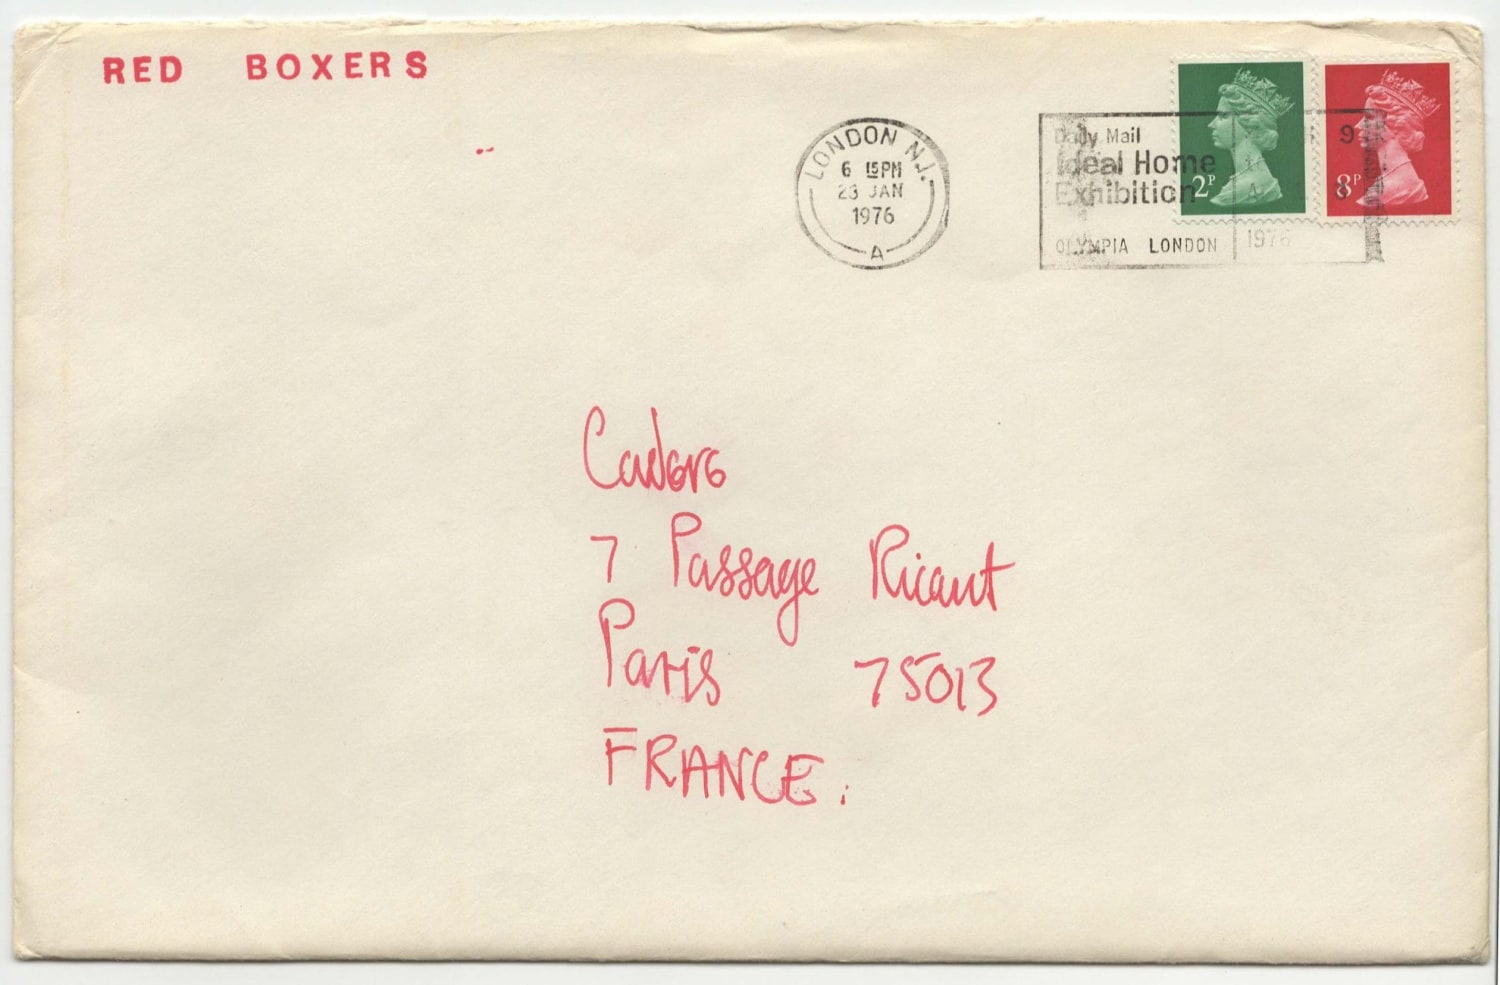 RED BOXERS
LONDON N.1.
6 15PM
23 JAN
1976
A
Daily Mail
Ideal Home
Exhibition
OLYMPIA LONDON
9
1976
2P
8P
Cadere
7 Passage Ricaut
Paris 75013
FRANCE.